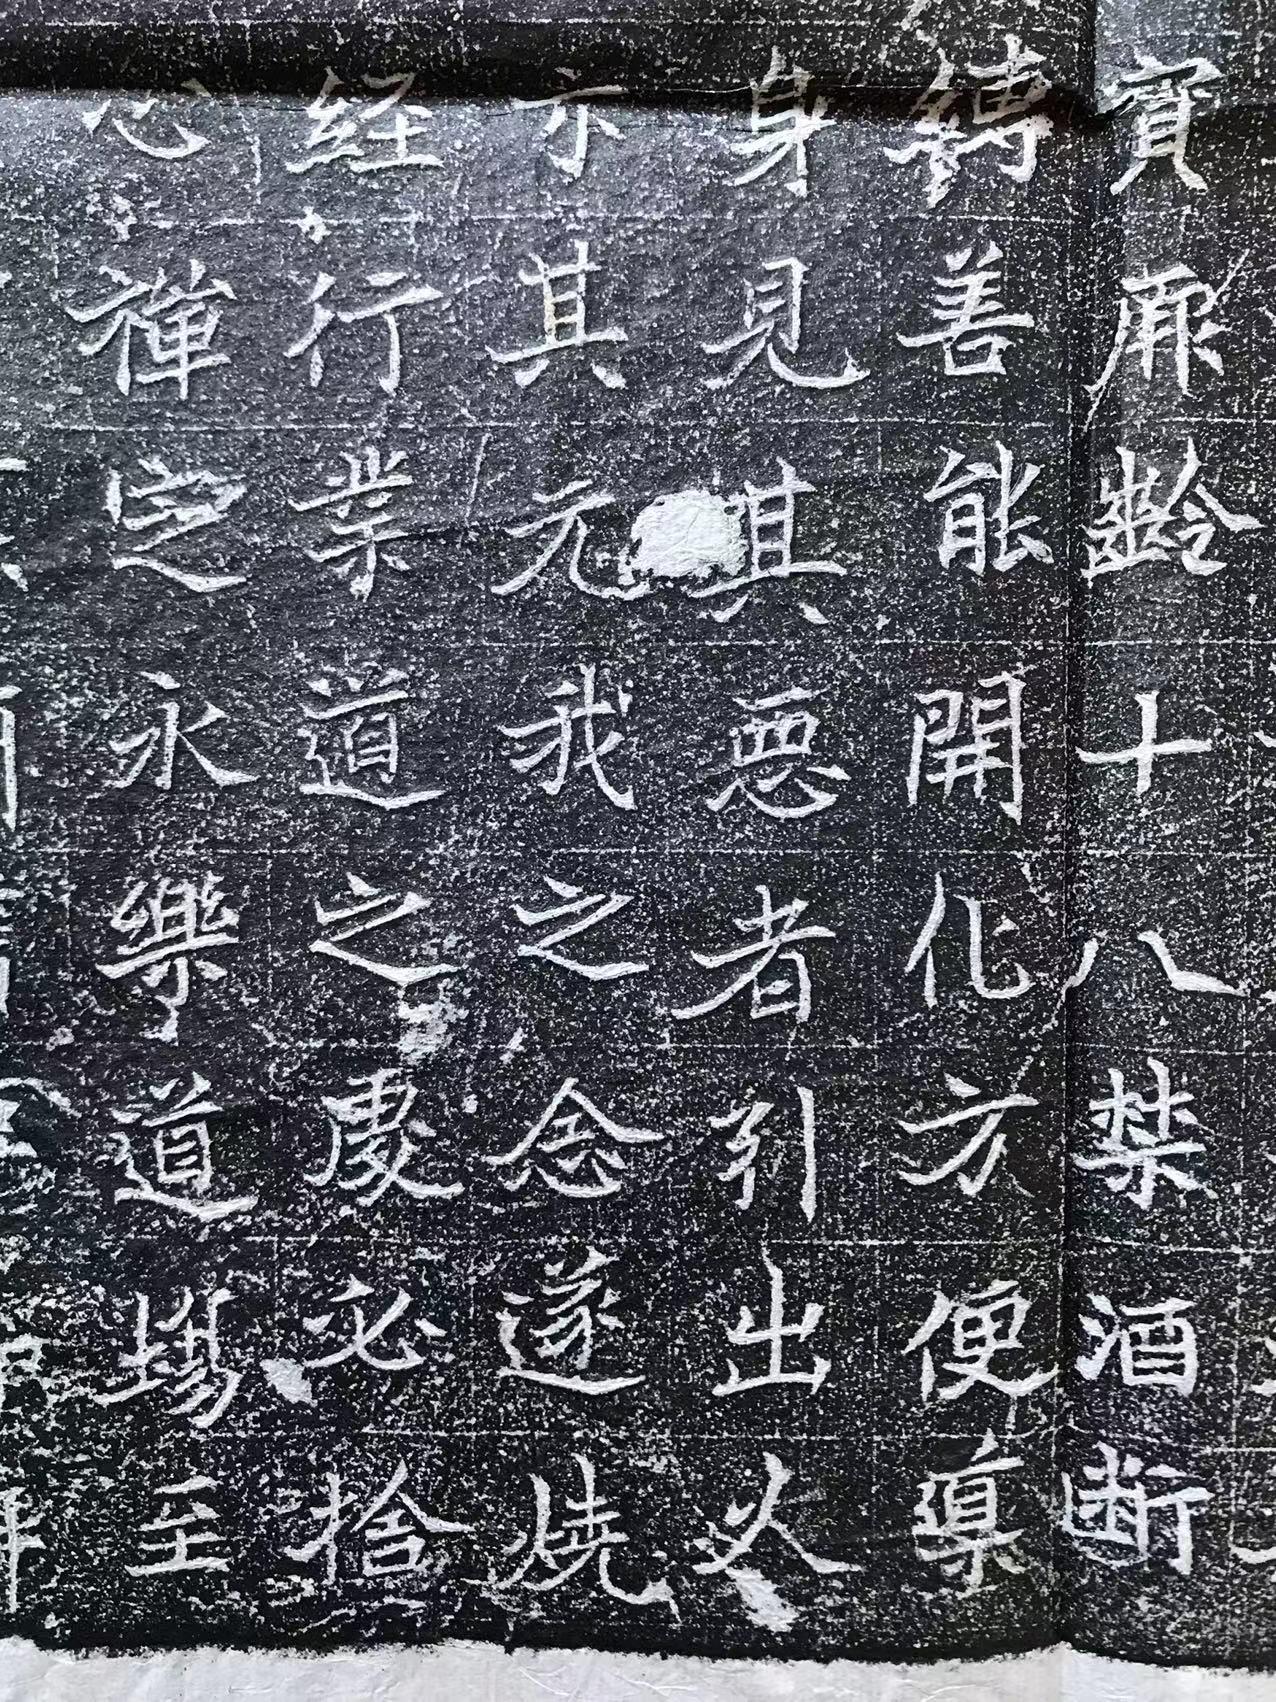 寶厥齡十八禁酒斷
縛善能開化方便導
身見其惡者引出火
示其元我之念遂燒
経行業道之處必捨
心禪定永樂道場至